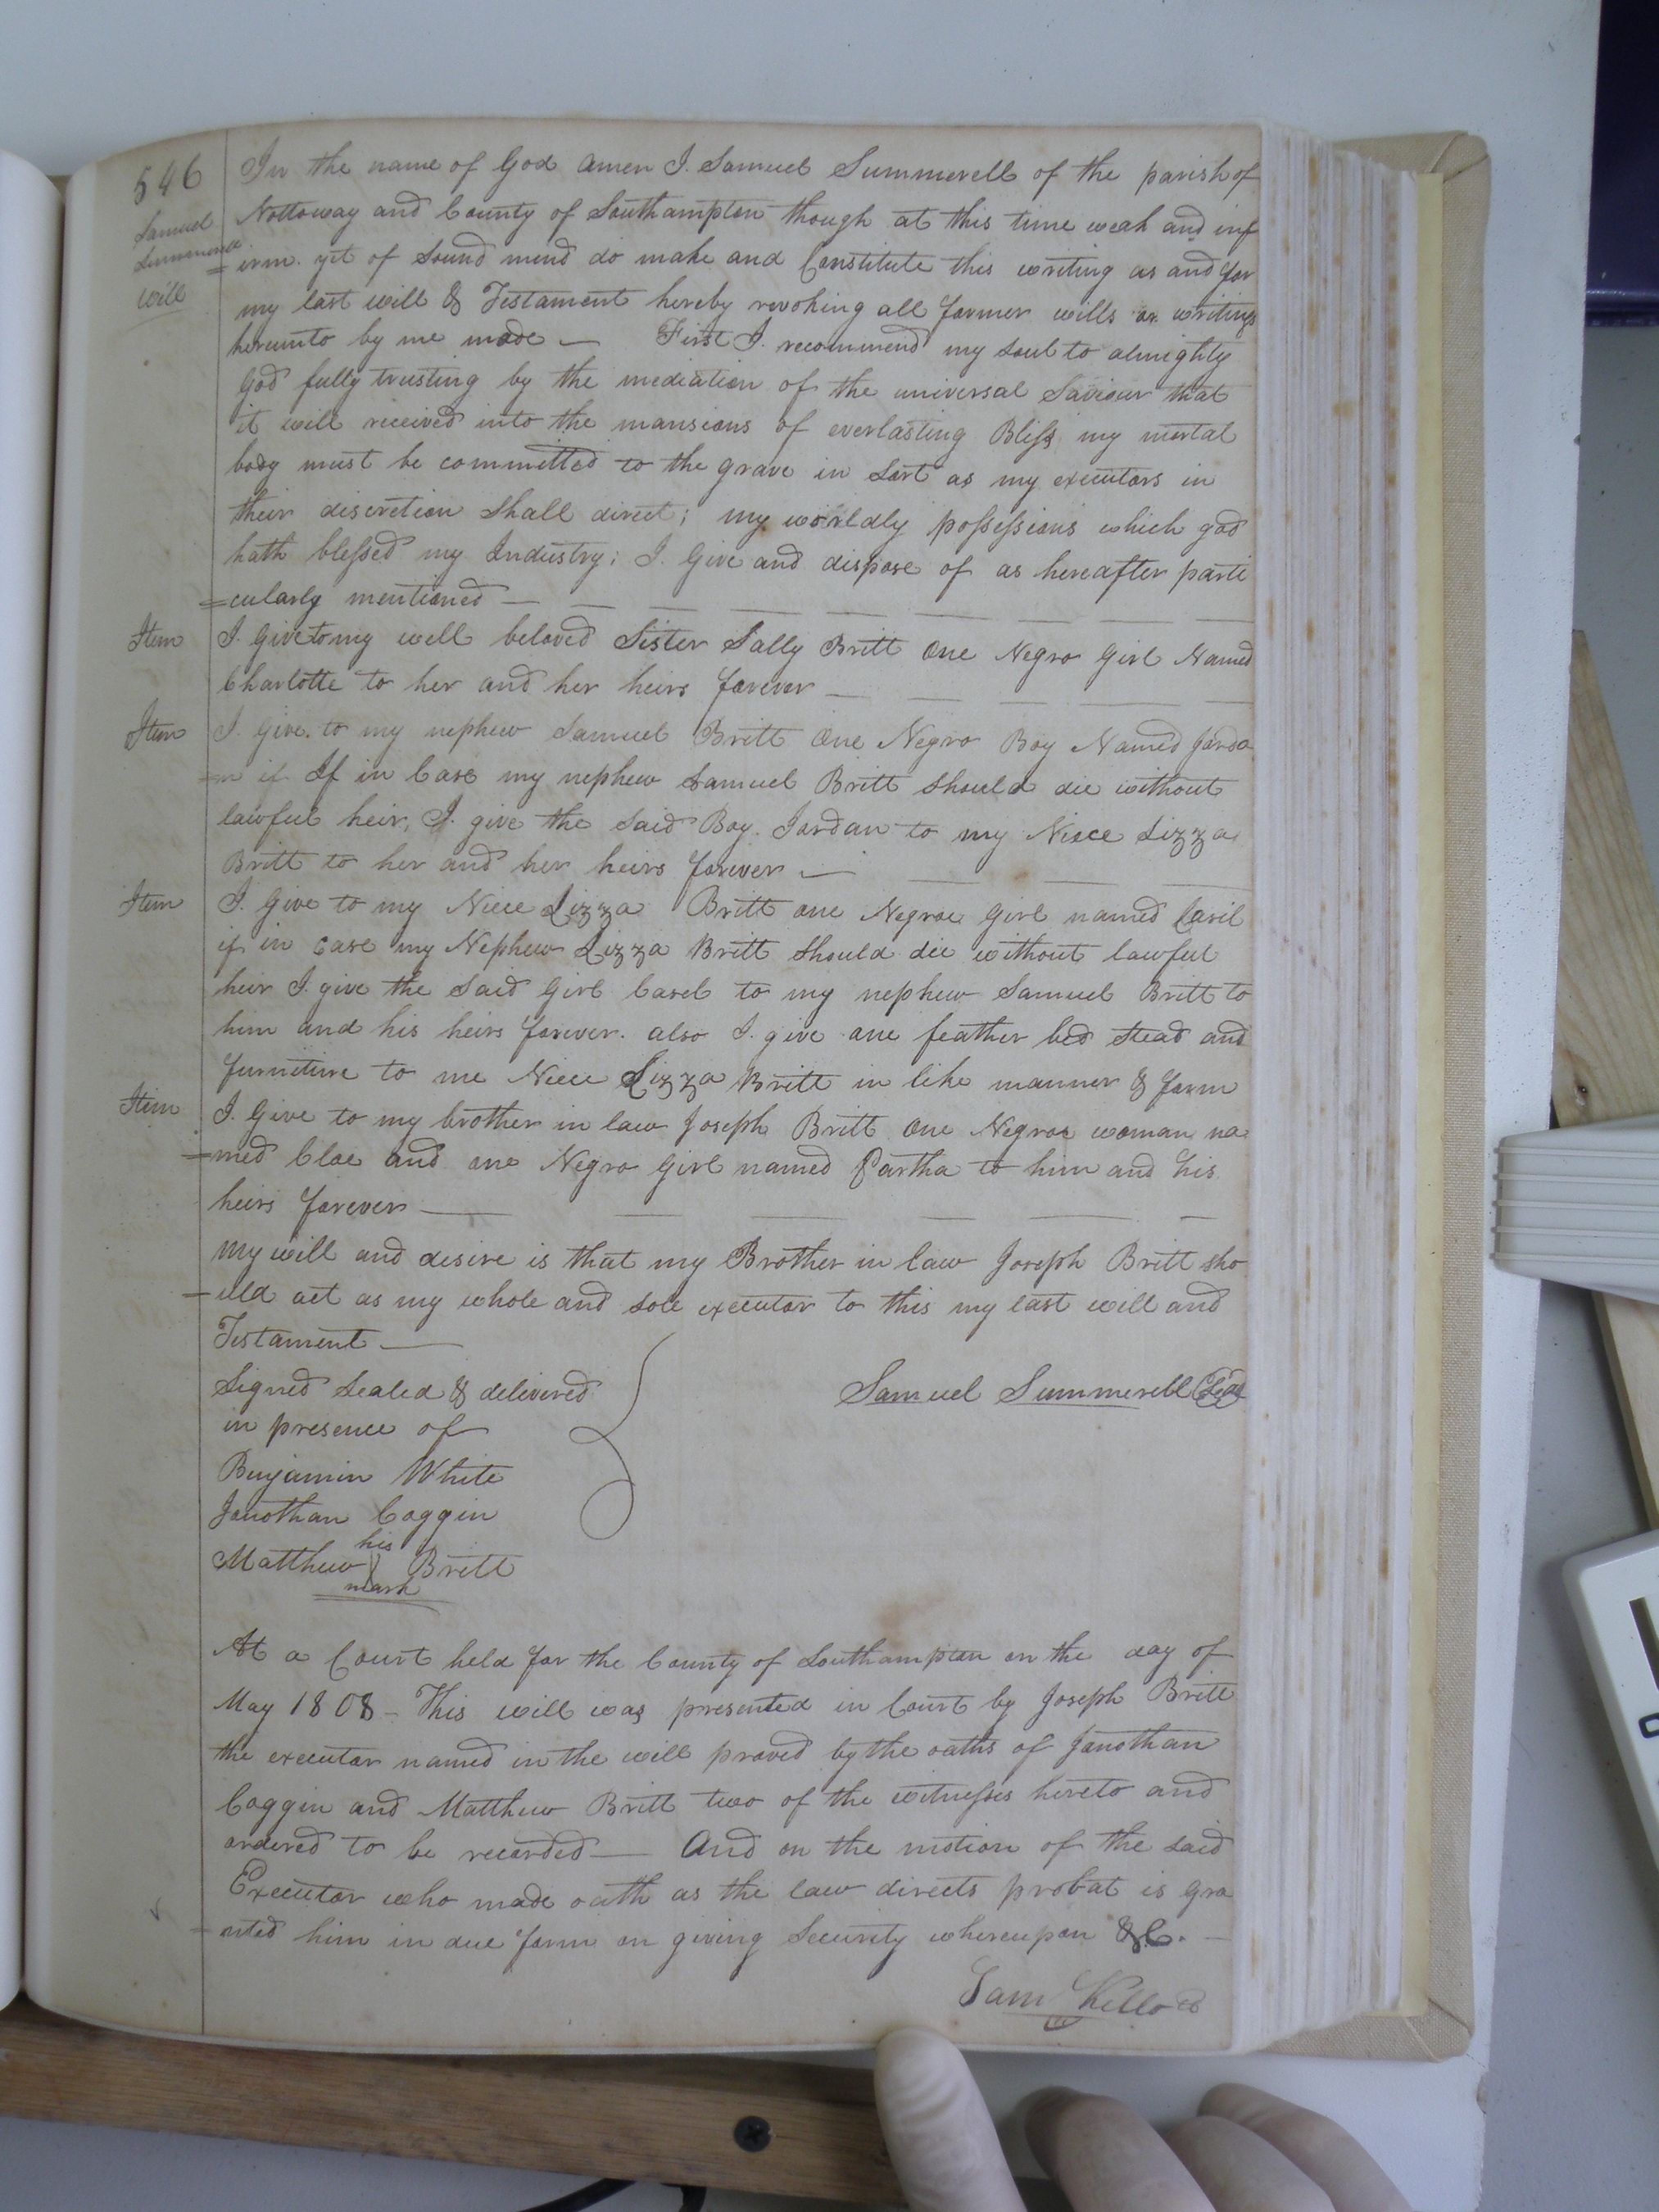 546
Samuel
Summerell
Will
In the name of God Amen I. Samuel Summerell of the parish of
Nottoway and County of Southampton though at this time weak and inf
=irm. yet of Sound mind do make and Constitute this writing as and for
my last will & Testament hereby revoking all former wills or writings
hereunto by me made — First I. recommend my soul to almighty
God fully trusting by the mediation of the universal Saviour that
it will received into the mansions of everlasting Bliss my mortal
body must be committed to the grave in Sort as my executors in
their discretion Shall direct; my worldly possessions which god
hath blessed my Industry; I. Give and dispose of as hereafter parti
=cularly mentioned —
Item I. Give to my well beloved Sister Sally Britt One Negro Girl Named
Charlotte to her and her heirs forever —
Item I. Give. to my nephew Samuel Britt One Negro Boy Named Jorda
=n if If in Case my nephew Samuel Britt should die without
lawful heir, I. give the said Boy. Jordan to my Niece Lizza
Britt to her and her heirs forever —
Item I. Give to my Niece Lizza Britt one Negroe Girl named Casil
if in case my Nephew Lizza Britt should die without lawful
heir I. give the Said Girl Casel to my nephew Samuel Britt to
him and his heirs forever. also I. give one feather bed Stead and
furniture to me Niece Lizza Britt in like manner & form
Item I. Give to my brother in law Joseph Britt One Negroe woman na
=med Cloe and one Negro Girl named Partha to him and his
heirs forever —
My will and desire is that my Brother in law Joseph Britt sho
=uld act as my whole and sole executor to this my last will and
Testament —
Signed Sealed & delivered Samuel Summerell Seal
in presence of
Benjamin White
Jonothan Coggin
his
Matthew Britt
mark
At a Court held for the County of Southampton on the day of
May 1808 — This will was presented in Court by Joseph Britt
the executor named in the will proved by the oaths of Jonothan
Coggin and Matthew Britt two of the witnesses hereto and
ordered to be recorded — And on the motion of the said
Executor who made oath as the law directs probat is gra
=nted him in due form on giving Security whereupon &C. —
Sam Kello